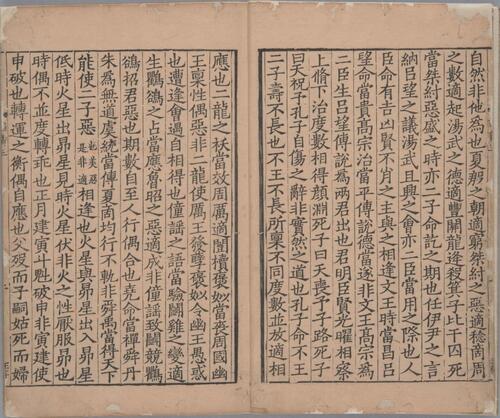 自然非他為也夏殷之朝適窮桀紂之惡適稔商周
之數適起湯武之德適豐關龍逄殺箕子比干囚死
當桀紂惡盛之時亦二子命訖之期也任伊尹之言
納呂望之議湯武且興之會亦二臣當用之際也人
臣命有吉凶賢不肖之主與之相逢文王時當昌呂
望命當貴高宗治當平傅說德當遂非文王高宗為
二臣生呂望傅說為兩君出也君明臣賢光曜相察
上脩下治度數相得顏淵死子曰天喪予子路死子
曰天祝予孔子自傷之辭非實然之道也孔子命不王
二子壽不長也不王不長所稟不同度數並放適相
應也二龍之祅當效周厲適闓櫝褒姒當喪周國幽
王稟性偶惡非二龍使厲王發孽褒姒令幽王愚惑
也遭逢會遇自相得也僮謠之語當驗鬭雞之變適
生鸜鵒之占當應魯昭之惡適成非僮謠致鬭競鸜
鵒招君惡也期數自至人行偶合也堯命當禪舜丹
朱為無道虞統當傳夏商均行不軌非舜禹當得天下
能使二子惡也美惡是非適相逢也火星與昴星出入昴星
低時火星出昴星見時火星伏非火之性厭服昴也
時偶不並度轉乖也正月建寅斗魁破申非寅建使
申破也轉運之衡偶自應也父歿而子嗣姑死而婦